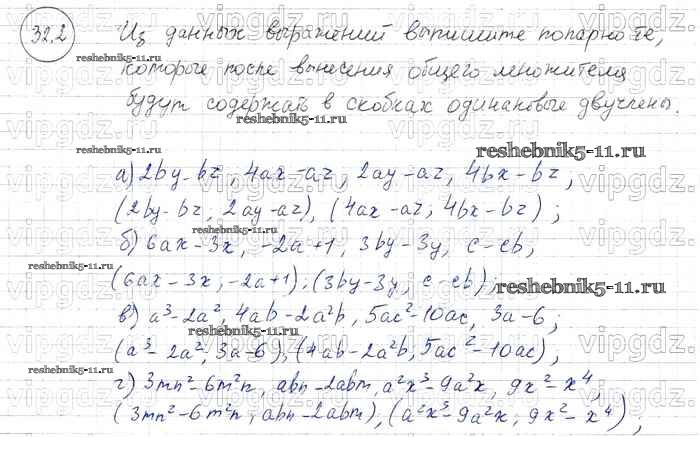 32.2 Из данных выражений выпишите попарно те,
которые после вынесения общего множителя
будут содержать в скобках одинаковые двучлены.
а) 2by-bz, 4ax-az, 2ay-az, 4bx-bz,
(2by-bz; 2ay-az), (4ax-az; 4bx-bz);
б) 6ax-3x, -2a+1, 3by-3y, c-cb,
(6ax-3x; -2a+1), (3by-3y; c-cb);
в) a³-2a², 4ab-2a²b, 5ac²-10ac, 3a-6;
(a³-2a²; 3a-6), (4ab-2a²b; 5ac²-10ac),
г) 3mn²-6m²n, abn-2abm, a²x³-9a²x, 9x²-x⁴,
(3mn²-6m²n; abn-2abm), (a²x³-9a²x; 9x²-x⁴);
reshebnik5-11.ru
reshebnik5-11.ru
reshebnik5-11.ru
reshebnik5-11.ru
reshebnik5-11.ru
reshebnik5-11.ru
reshebnik5-11.ru
reshebnik5-11.ru